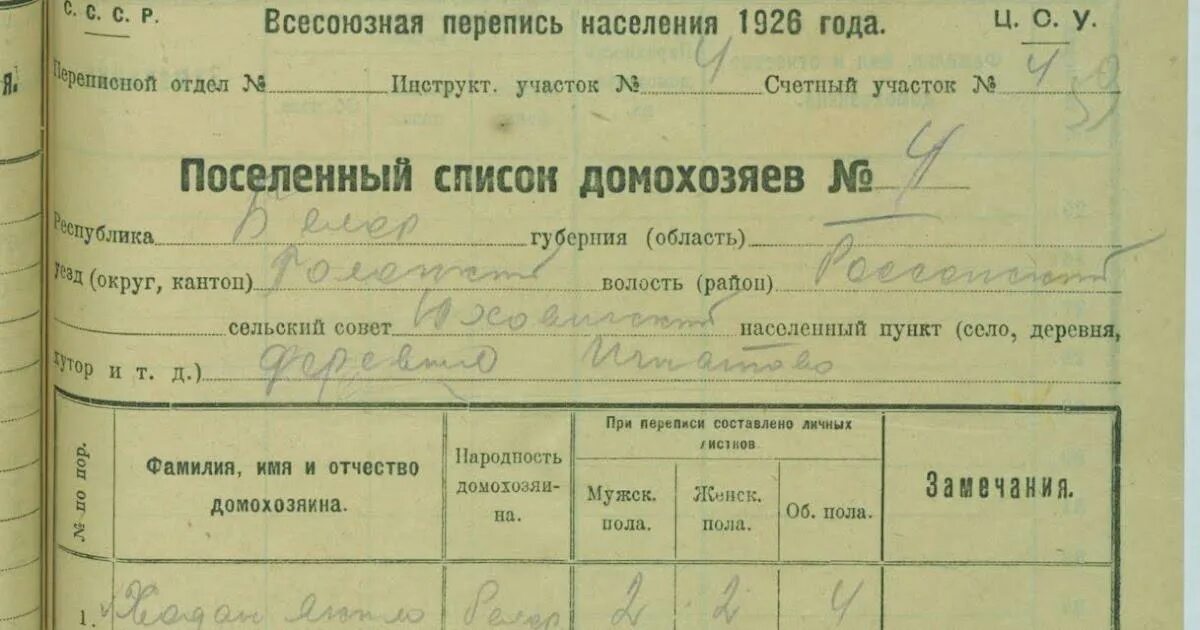 С. С. С. Р.
Всесоюзная перепись населения 1926 года.
Ц. С. У.
я.
Переписной отдел № Инструкт. участок № 4 Счетный участок № 4
Поселенный список домохозяев № 4
Республика Белар губерния (область)
уезд (округ, кантон) волость (район)
сельский совет населенный пункт (село, деревня,
хутор и т. д.) деревня Игнатово
№ по пор.
Фамилия, имя и отчество домохозяина.
Народность домохозяина.
При переписи составлено личных листков
Мужск. пола.
Женск. пола.
Об. пола.
Замечания.
1. Белар 2 2 4